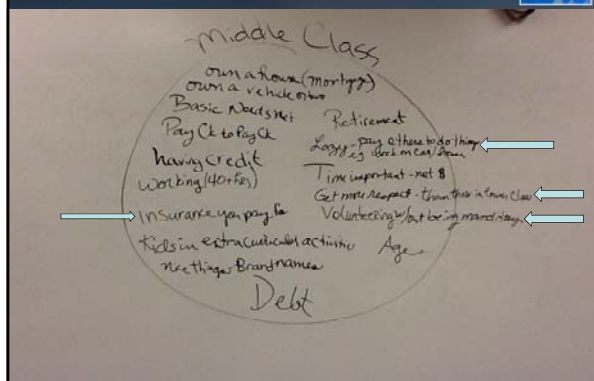 Middle Class
own a house (mortgage)
own a vehicle or two
Basic Needs met
Pay Ck to Pay Ck
having credit
working (40+hrs)
Insurance you pay for
Kids in extracurricular activities
nice things Brand names
Debt
Retirement
Lazy - pay others to do things
eg work on car/
Time important - not $
Get more respect - than those in lower class
Volunteering w/out being manditory
Age